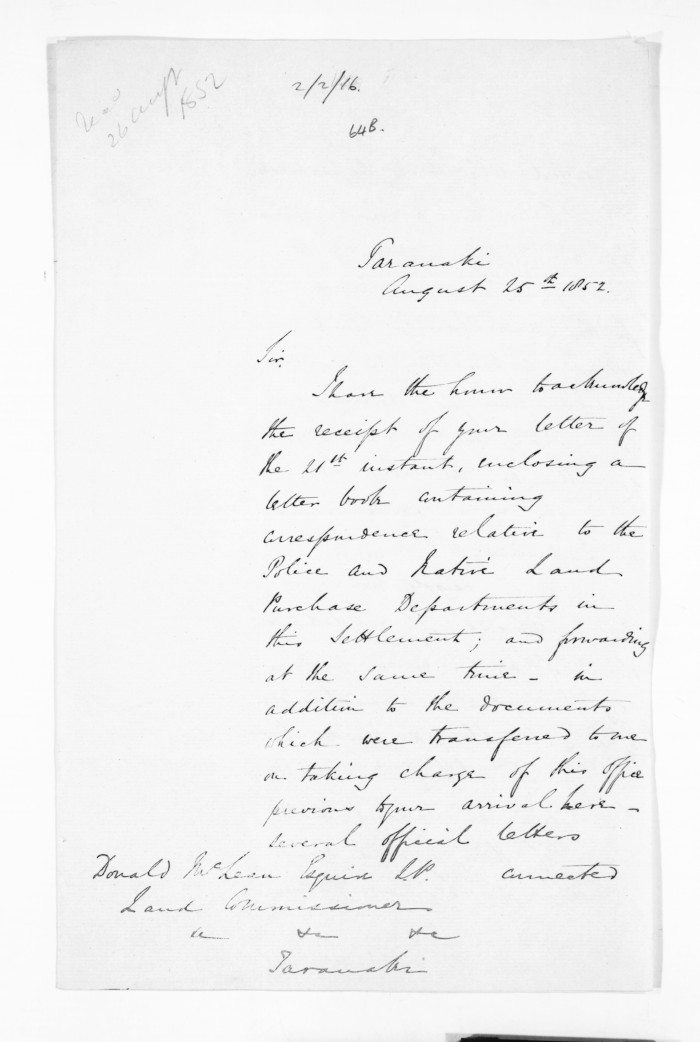 26 August
1852
2/2/16.
64B.
Taranaki
August 25th 1852.
Sir,
I have the honor to acknowledge
the receipt of your letter of
the 21st instant, enclosing a
letter book containing
correspondence relative to the
Police and Native Land
Purchase Departments in
this Settlement; and forwarding
at the same time - in
addition to the documents
which were transferred to me
on taking charge of this office
previous to your arrival here -
several official letters
connected
Donald McLean Esquire J.P.
Land Commissioner
&c &c &c
Taranaki